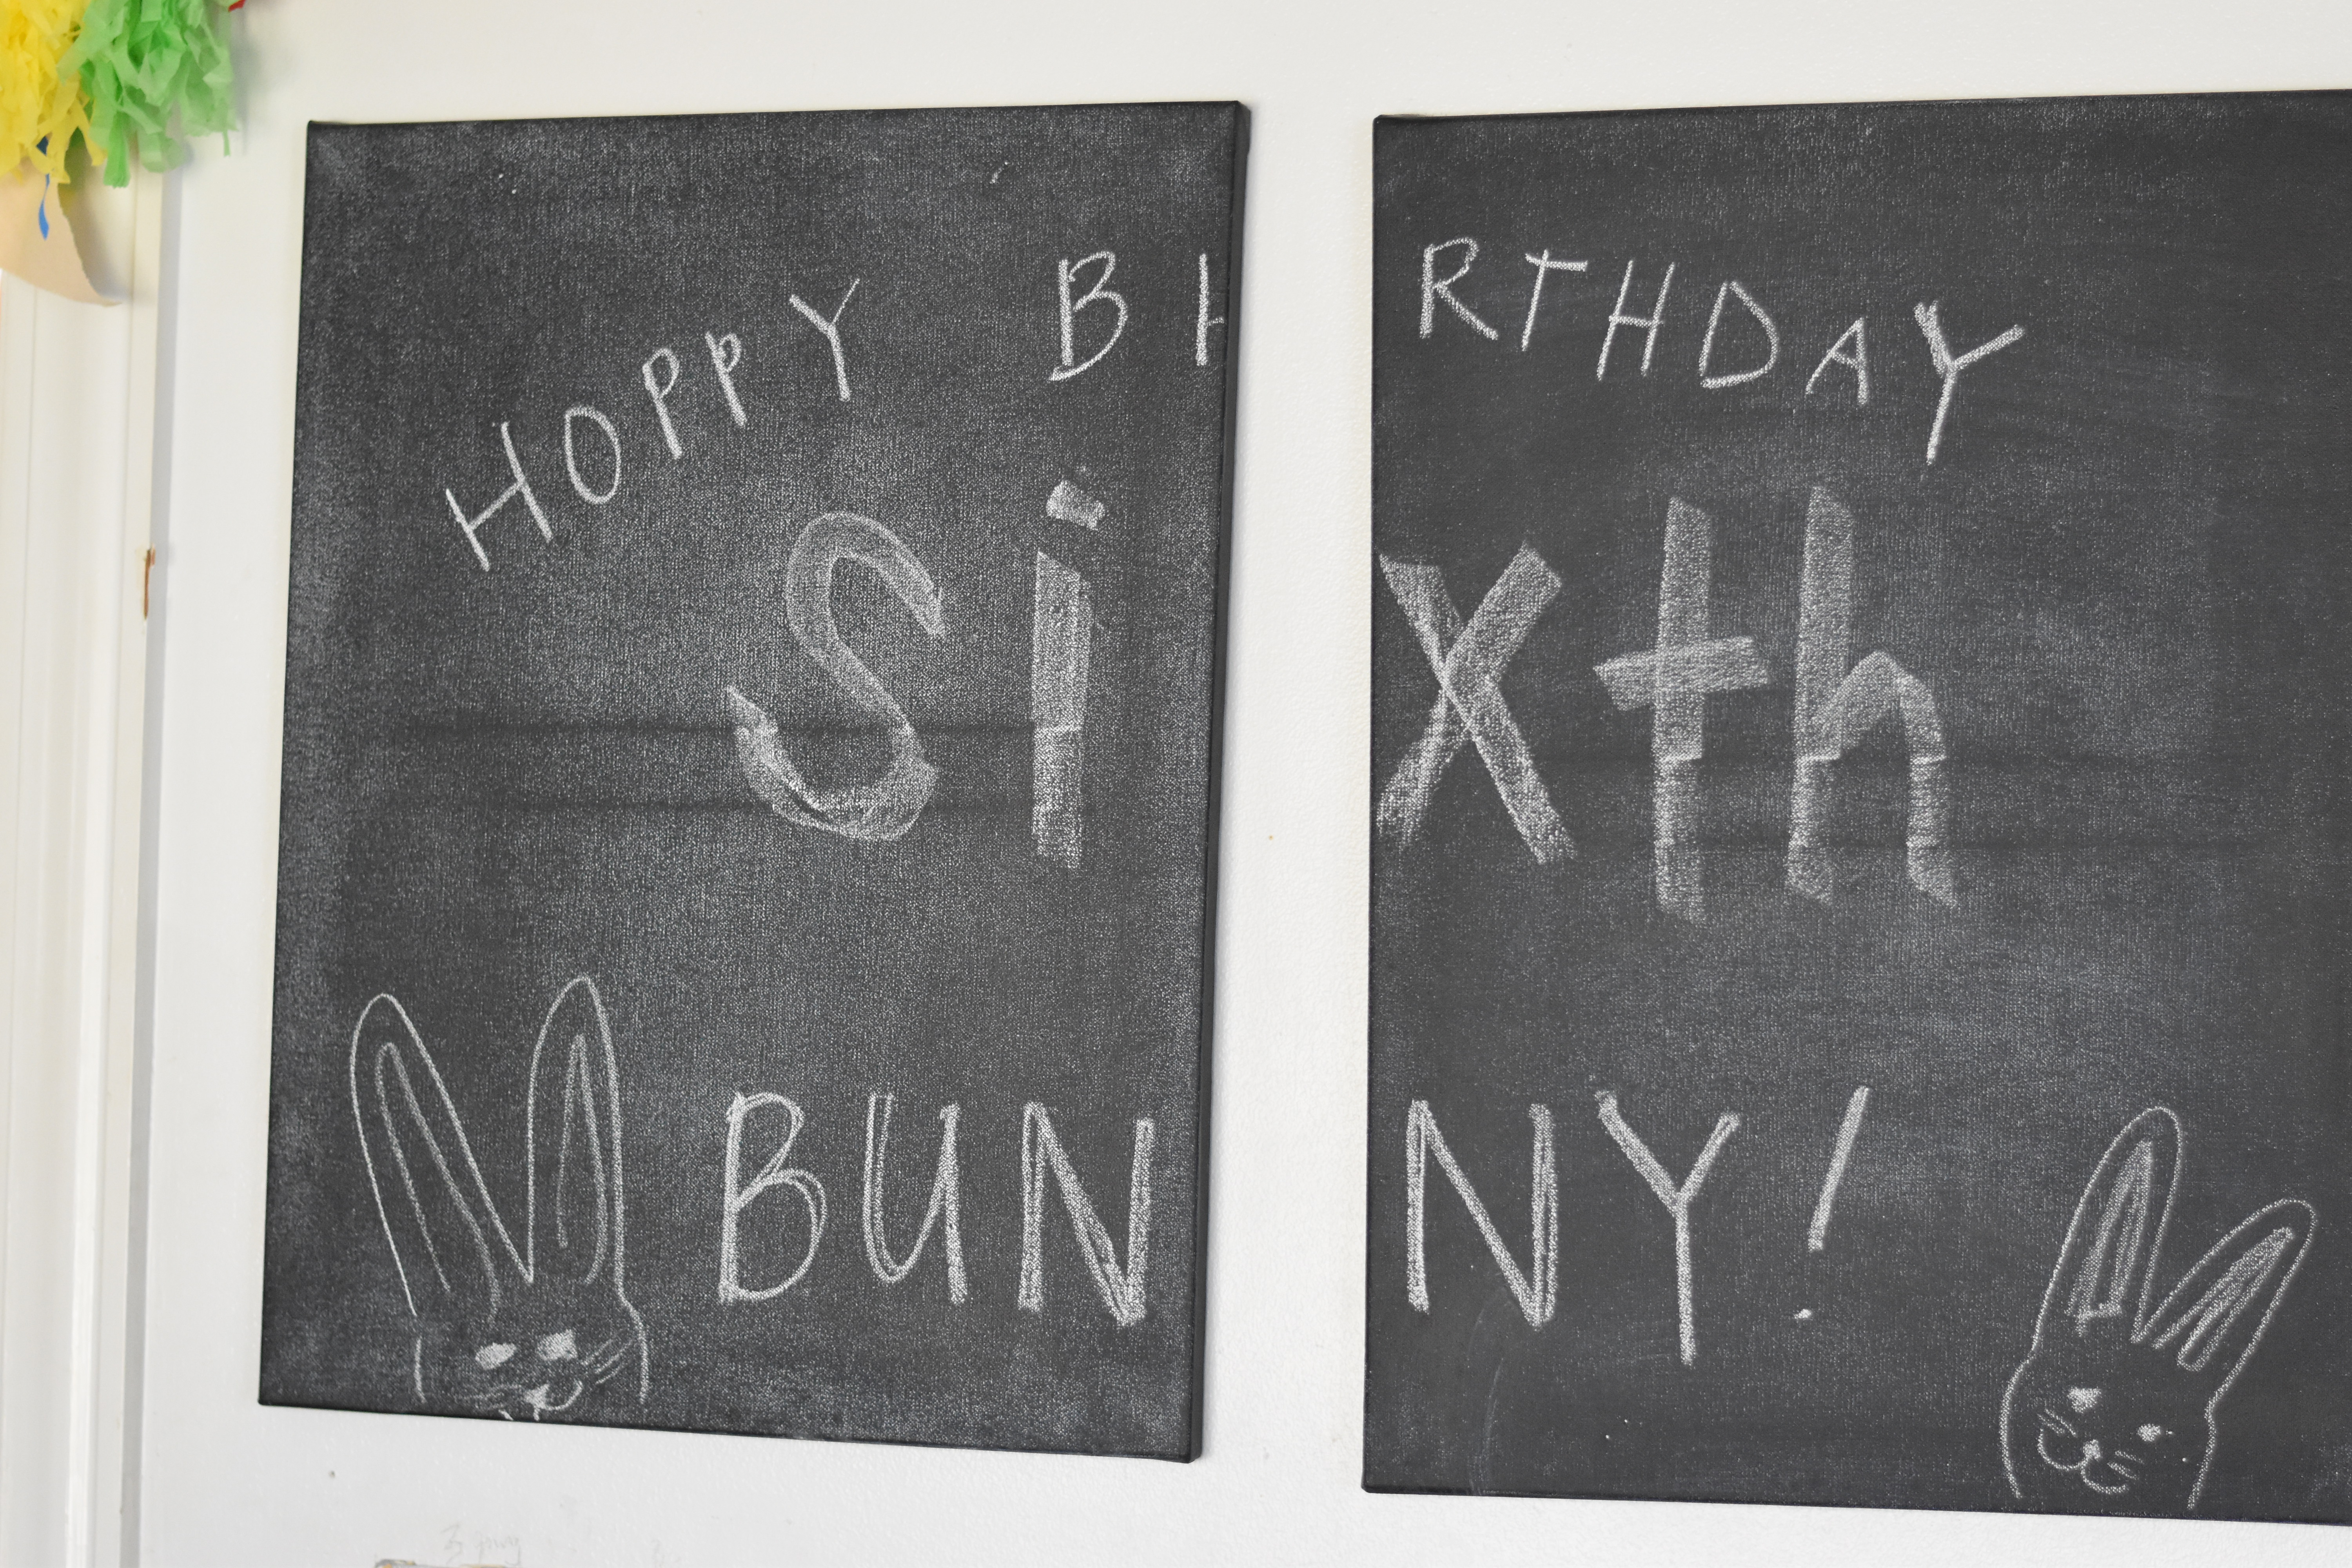 HOPPY BIRTHDAY
Sixth
BUNNY!